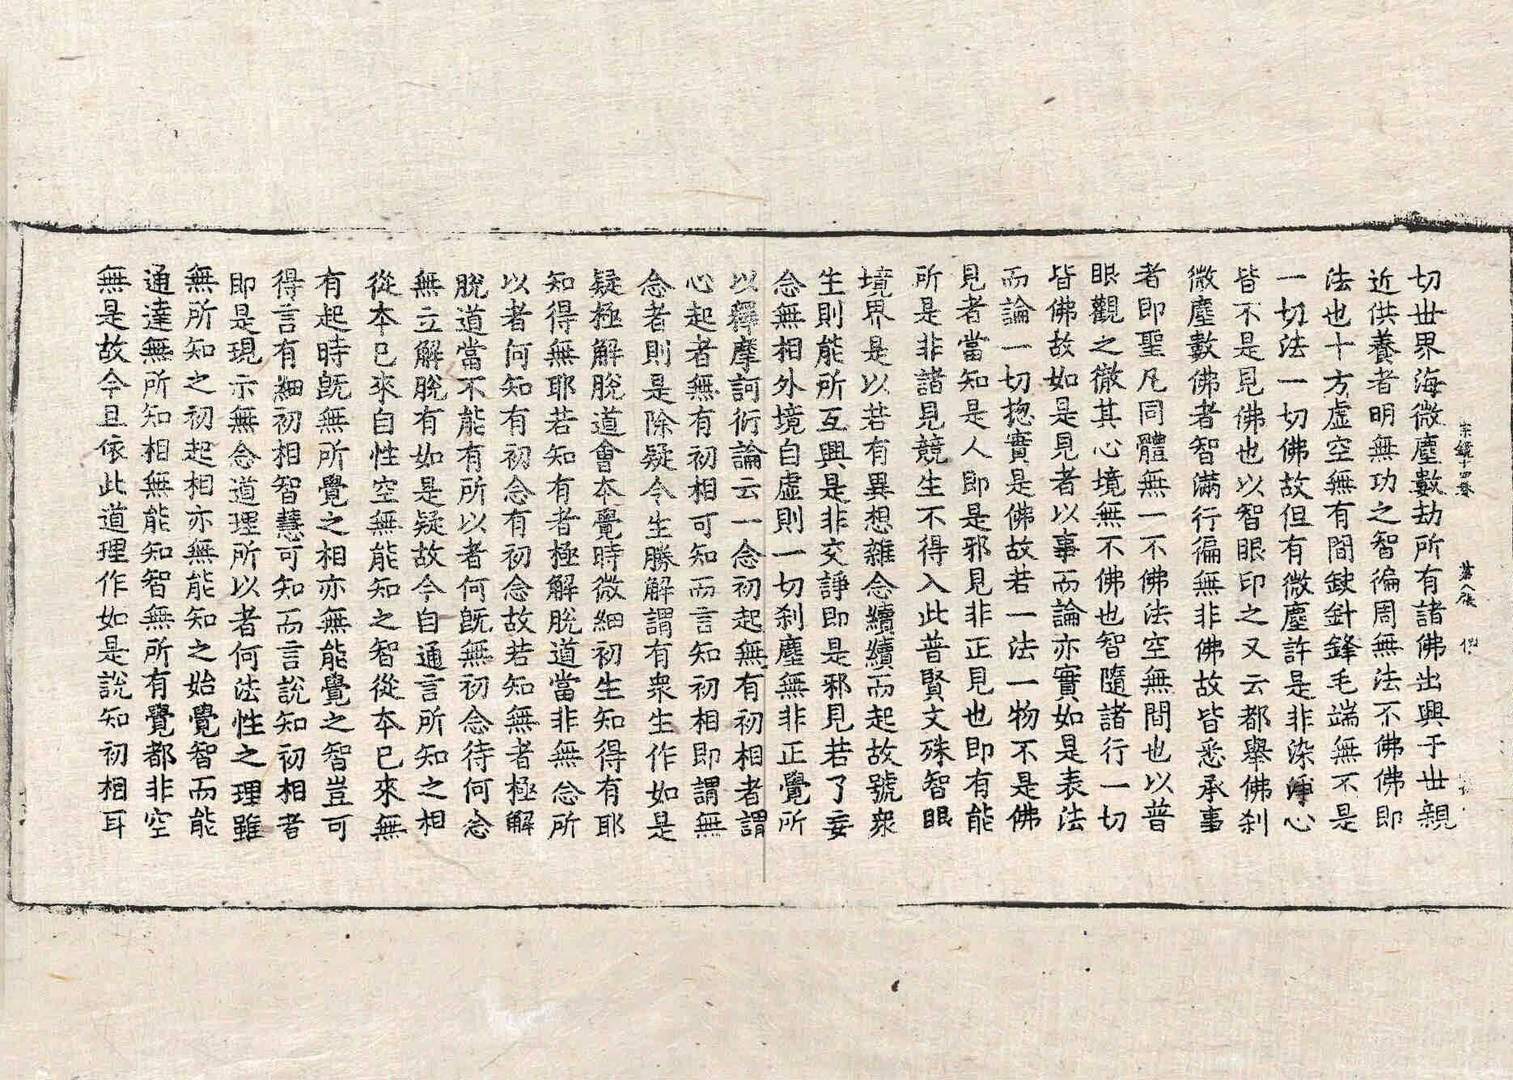 切世界海微塵數劫所有諸佛出興于世親
宗鏡十四卷 第八張
近供養者明無功之智徧周無法不佛佛即
法也十方虛空無有間缺針鋒毛端無不是
一切法一切佛故但有微塵許是非染淨心
皆不是見佛也以智眼印之又云都舉佛刹
微塵數佛者智滿行徧無非佛故皆悉承事
者即聖凡同體無一不佛法空無間也以普
眼觀之徹其心境無不佛也智隨諸行一切
皆佛故如是見者以事而論亦實如是表法
而論一切揔實是佛故若一法一物不是佛
見者當知是人即是邪見非正見也即有能
所是非諸見競生不得入此普賢文殊智眼
境界是以若有異想雜念續續而起故號衆
生則能所互興是非交諍即是邪見若了妄
念無相外境自虛則一切刹塵無非正覺所
以釋摩訶衍論云一念初起無有初相者謂
心起者無有初相可知而言知初相即謂無
念者則是除疑令生勝解謂有衆生作如是
疑極解脫道會本覺時微細初生知得有耶
知得無耶若知有者極解脫道當非無念所
以者何知有初念有初念故若知無者極解
脫道當不能有所以者何旣無初念待何念
無立解脫有如是疑故今自通言所知之相
從本已來自性空無能知之智從本已來無
有起時旣無所覺之相亦無能覺之智豈可
得言有細初相智慧可知而言說知初相者
即是現示無念道理所以者何法性之理雖
無所知之初起相亦無能知之始覺智而能
通達無所知相無能知智無所有覺都非空
無是故今且依此道理作如是說知初相耳